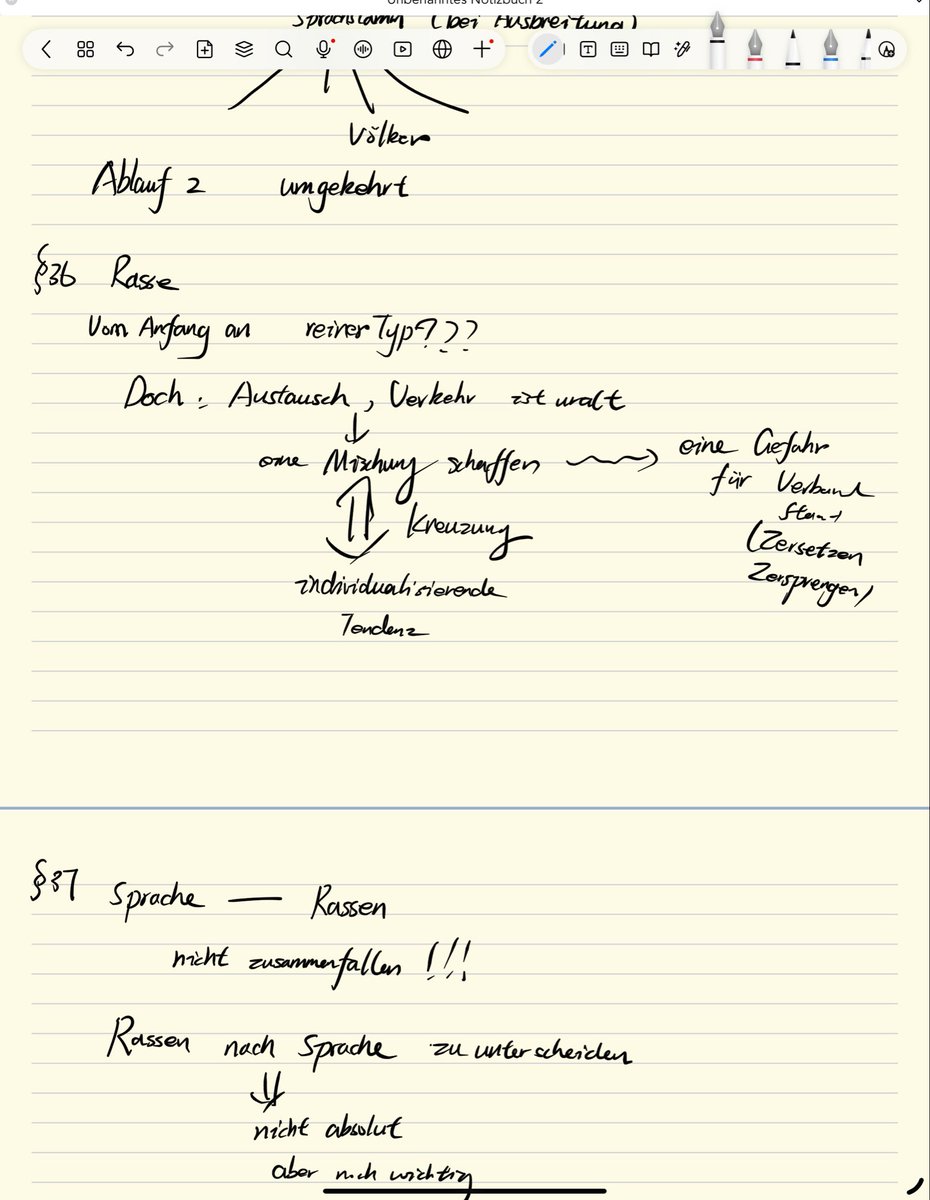 Unbenanntes Notizbuch 2
Sprachstamm (bei Ausbreitung)
Völker
Ablauf 2 umgekehrt
§36 Rasse
Vom Anfang an reiner Typ???
Doch: Austausch, Verkehr ist uralt
eine Mischung schaffen eine Gefahr
für Verband
Kreuzung
(Zersetzen
Zersprengen)
individualisierende
Tendenz
§37 Sprache — Rassen
nicht zusammenfallen!!!
Rassen nach Sprache zu unterscheiden
nicht absolut
aber wichtig